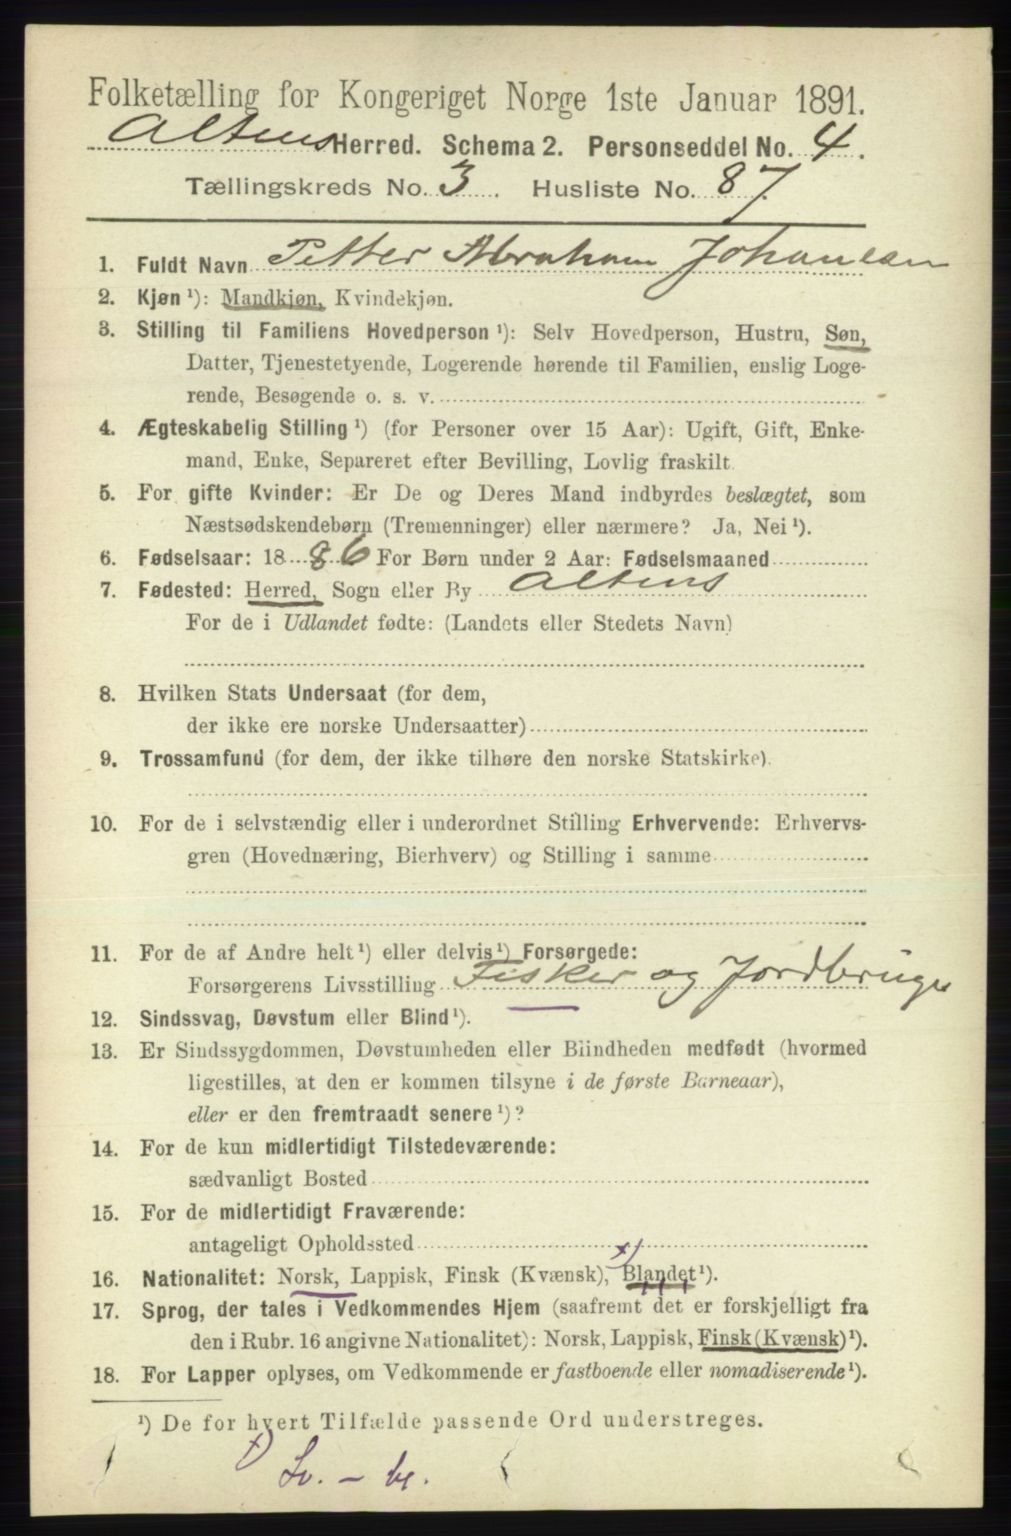 Folketælling for Kongeriget Norge 1ste Januar 1891.
Altens Herred. Schema 2. Personseddel No. 4.
Tællingskreds No. 3. Husliste No. 87.
1. Fuldt Navn Petter Abraham Johansen
2. Kjøn ¹): Mandkjøn, Kvindekjøn.
3. Stilling til Familiens Hovedperson ¹): Selv Hovedperson, Hustru, Søn,
Datter, Tjenestetyende, Logerende hørende til Familien, enslig Loge-
rende, Besøgende o. s. v.
4. Ægteskabelig Stilling ¹) (for Personer over 15 Aar): Ugift, Gift, Enke-
mand, Enke, Separeret efter Bevilling, Lovlig fraskilt.
5. For gifte Kvinder: Er De og Deres Mand indbyrdes beslægtet, som
Næstsødskendebørn (Tremenninger) eller nærmere? Ja, Nei ¹).
6. Fødselsaar: 1886 For Børn under 2 Aar: Fødselsmaaned
7. Fødested: Herred, Sogn eller By Altens
For de i Udlandet fødte: (Landets eller Stedets Navn)
8. Hvilken Stats Undersaat (for dem,
der ikke ere norske Undersaatter)
9. Trossamfund (for dem, der ikke tilhøre den norske Statskirke).
10. For de i selvstændig eller i underordnet Stilling Erhvervende: Erhvervs-
gren (Hovednæring, Bierhverv) og Stilling i samme
11. For de af Andre helt ¹) eller delvis ¹) Forsørgede:
Forsørgerens Livsstilling Fisker og Jordbruger
12. Sindssvag, Døvstum eller Blind ¹).
13. Er Sindssygdommen, Døvstumheden eller Blindheden medfødt (hvormed
ligestilles, at den er kommen tilsyne i de første Barneaar),
eller er den fremtraadt senere ¹)?
14. For de kun midlertidigt Tilstedeværende:
sædvanligt Bosted
15. For de midlertidigt Fraværende:
antageligt Opholdssted
16. Nationalitet: Norsk, Lappisk, Finsk (Kvænsk), Blandet ¹).
17. Sprog, der tales i Vedkommendes Hjem (saafremt det er forskjelligt fra
den i Rubr. 16 angivne Nationalitet): Norsk, Lappisk, Finsk (Kvænsk) ¹).
18. For Lapper oplyses, om Vedkommende er fastboende eller nomadiserende ¹).
¹) De for hvert Tilfælde passende Ord understreges.